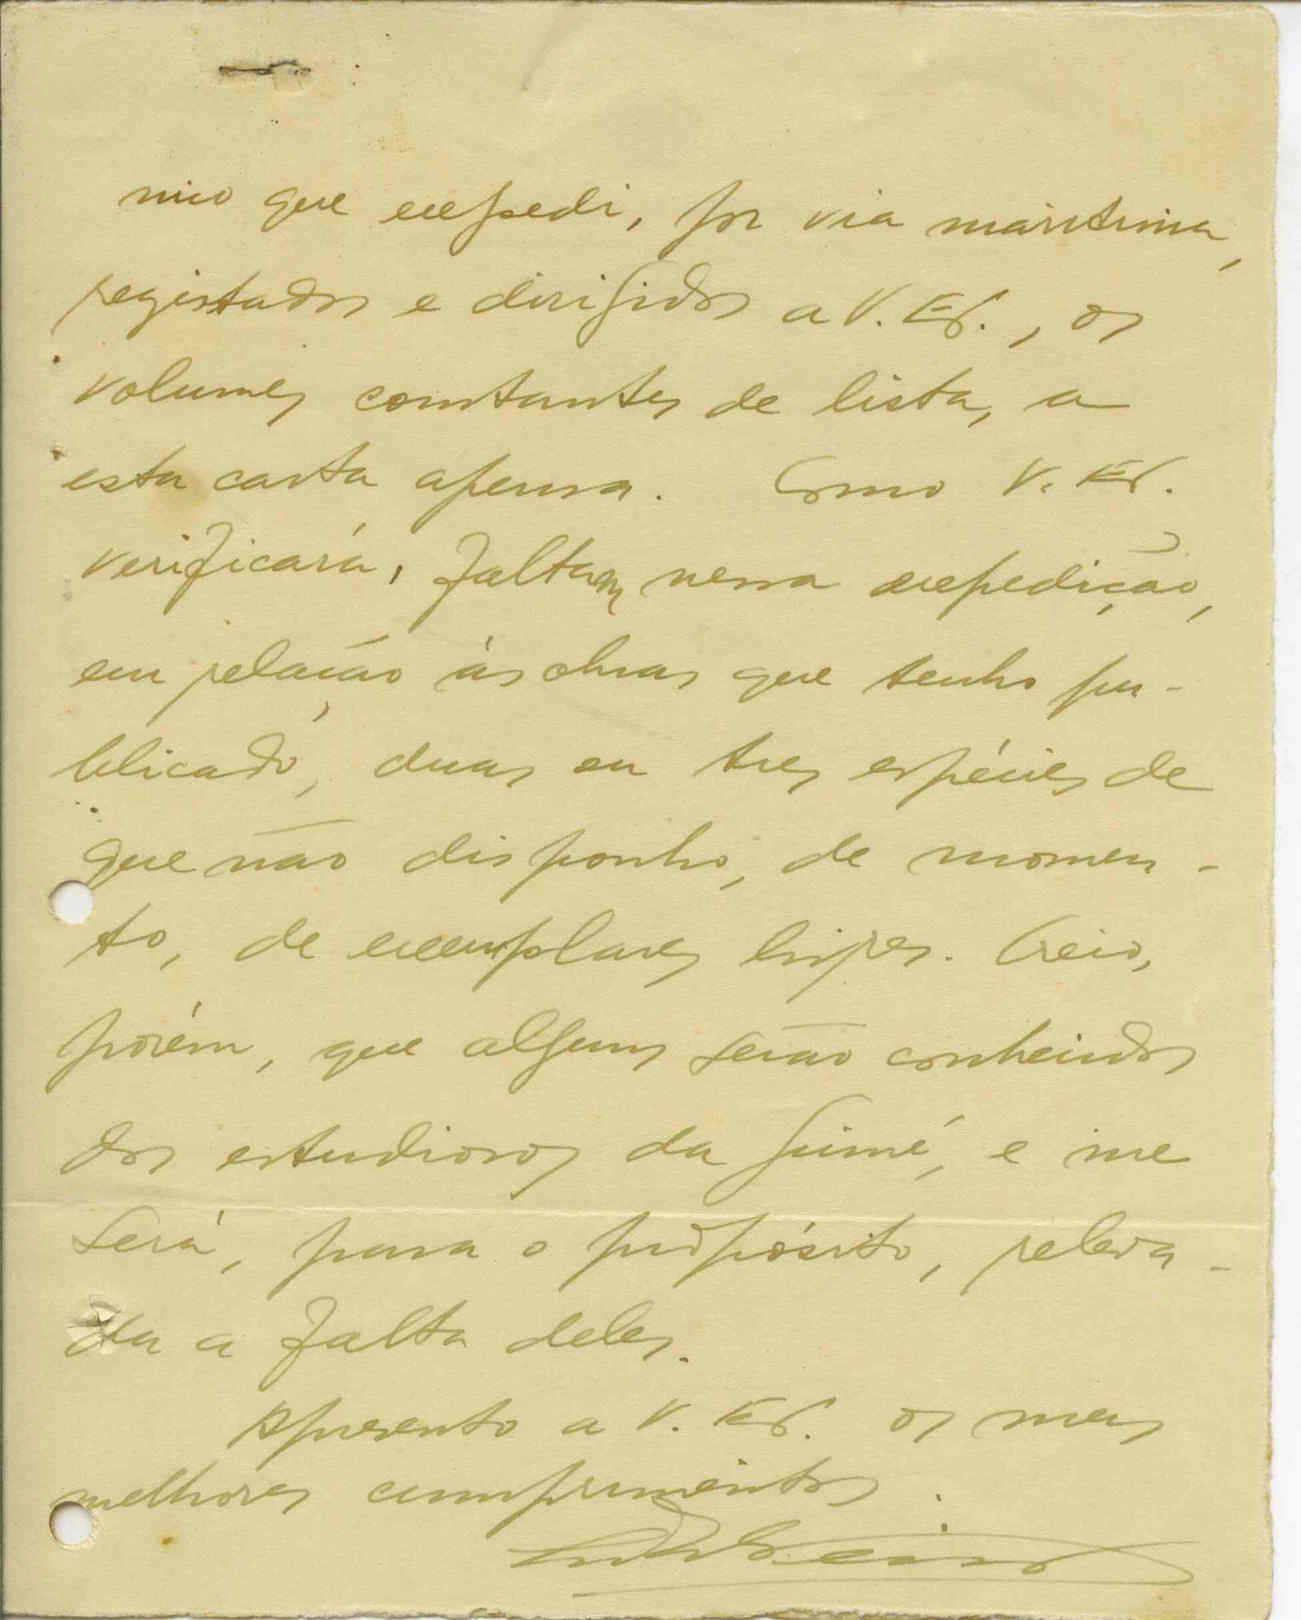 nico que expedi, por via marítima,
registados e dirigidos a V. Ex., os
volumes constantes de lista, a
esta carta apensa. Como V. Ex.
verificará, faltam, nessa expedição,
em relação às obras que tenho pu-
blicado, duas ou tres espécies de
que não disponho, de momen-
to, de exemplares livres. Creio,
porém, que alguns serão conhecidos
dos estudiosos da Guiné, e me
será, para o propósito, releva-
da a falta deles.
Apresento a V. Ex. os meus
melhores cumprimentos.